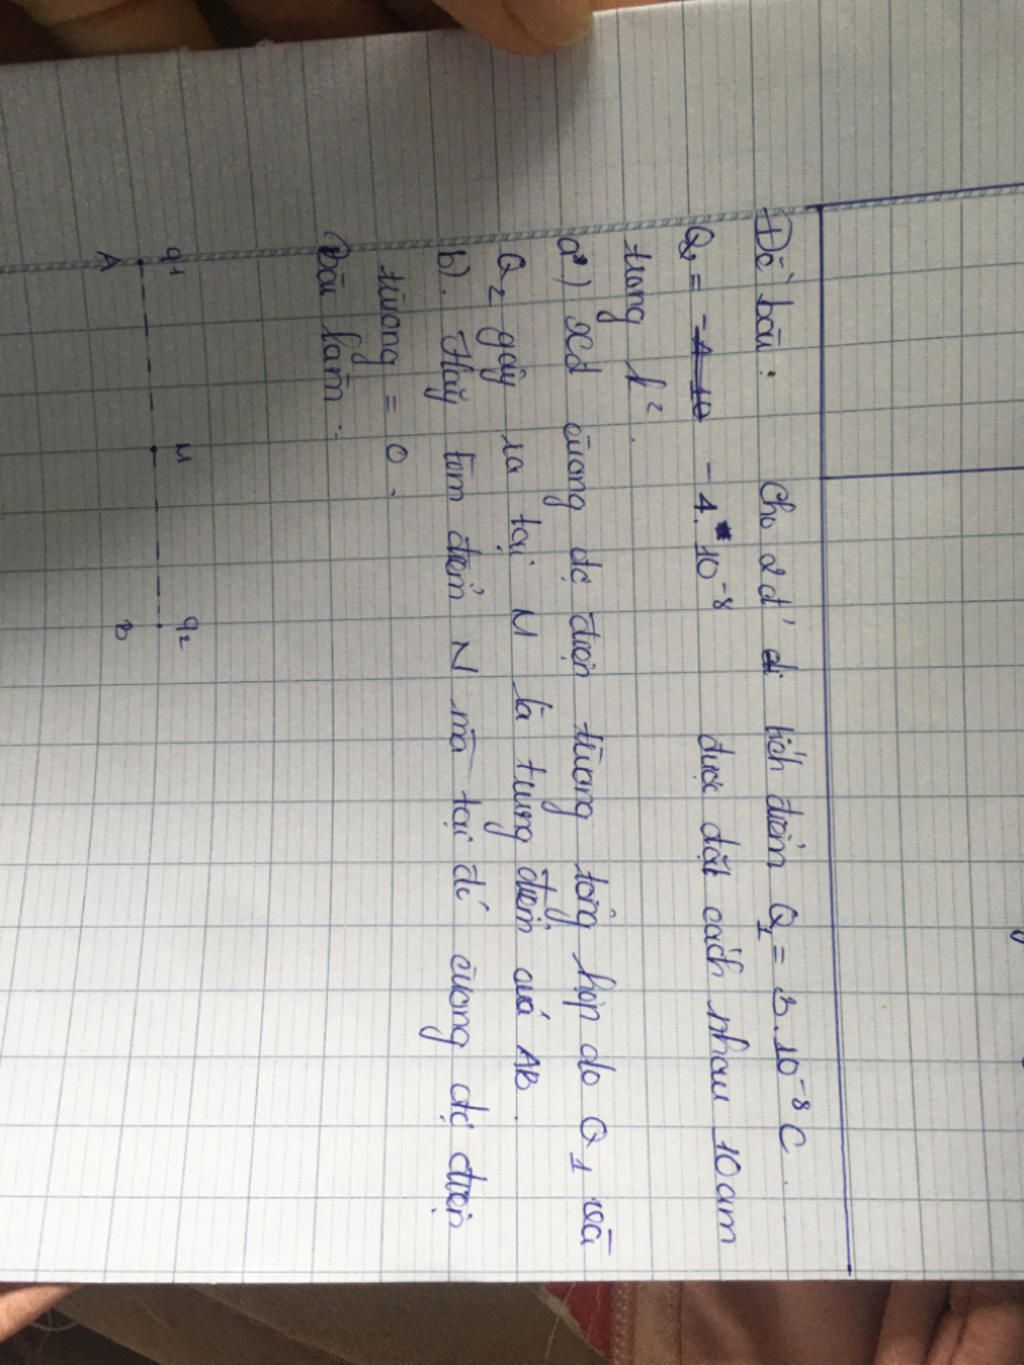 Đề bài: Cho 2 đ' đi tích điểm Q1 = 3.10⁻⁸ C.
Q2 = - 4.10⁻⁸ được đặt cách nhau 10cm
trong k².
a) Xđ cường độ điện trường tổng hợp do Q1 và
Q2 gây ra tại M là trung điểm của AB.
b). Hãy tìm điểm N mà tại đó cường độ điện
trường = 0.
Bài làm:
q1 M q2
A B